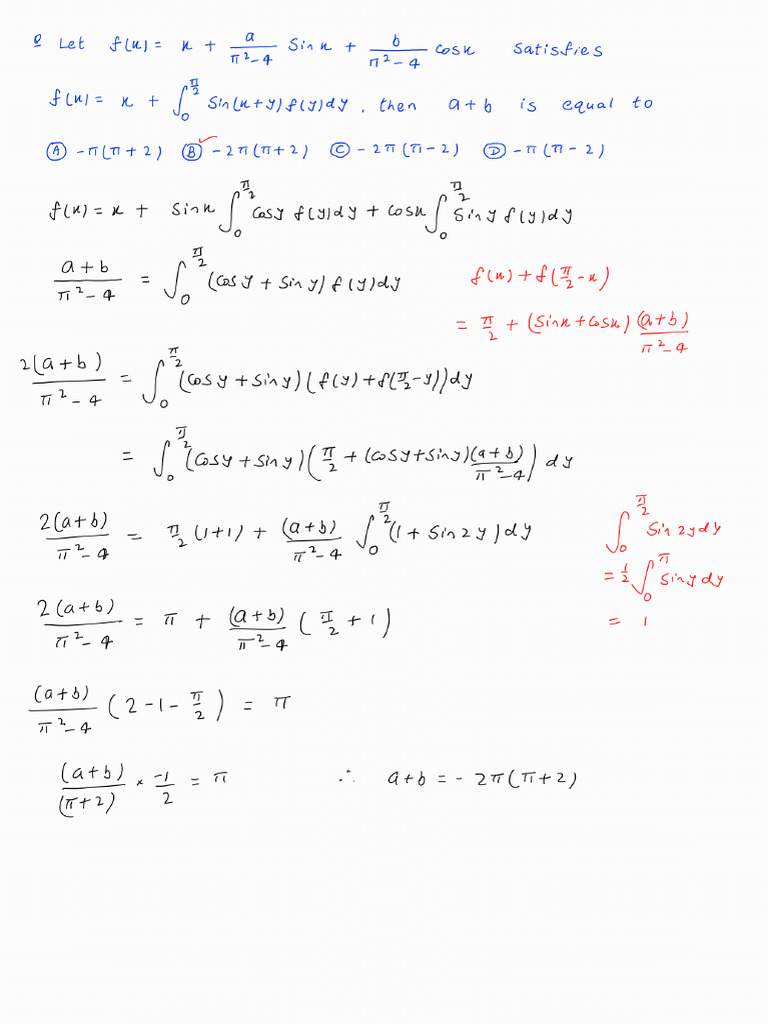 Q Let f(x) = x + a/(π²-4) Sin x + b/(π²-4) cosx satisfies
f(x) = x + ∫₀^(π/2) Sin(x+y) f(y)dy, then a+b is equal to
Ⓐ -π(π+2) Ⓑ -2π(π+2) Ⓒ -2π(π-2) Ⓓ -π(π-2)
f(x) = x + sinx ∫₀^(π/2) cosy f(y)dy + cosx ∫₀^(π/2) Siny f(y)dy
(a+b)/(π²-4) = ∫₀^(π/2) (cosy + siny) f(y)dy
f(x) + f(π/2 - x)
= π/2 + (Sinx + cosx) (a+b)/(π²-4)
2(a+b)/(π²-4) = ∫₀^(π/2) (cosy + siny)(f(y) + f(π/2 - y))dy
= ∫₀^(π/2) (cosy + siny)(π/2 + (cosy + siny)(a+b)/(π²-4)) dy
2(a+b)/(π²-4) = π/2 (1+1) + (a+b)/(π²-4) ∫₀^(π/2) (1 + sin2y)dy
∫₀^(π/2) Sin 2y dy
= 1/2 ∫₀^π siny dy
= 1
2(a+b)/(π²-4) = π + (a+b)/(π²-4) (π/2 + 1)
(a+b)/(π²-4) (2-1-π/2) = π
(a+b)/(π+2) × -1/2 = π ∴ a+b = -2π(π+2)